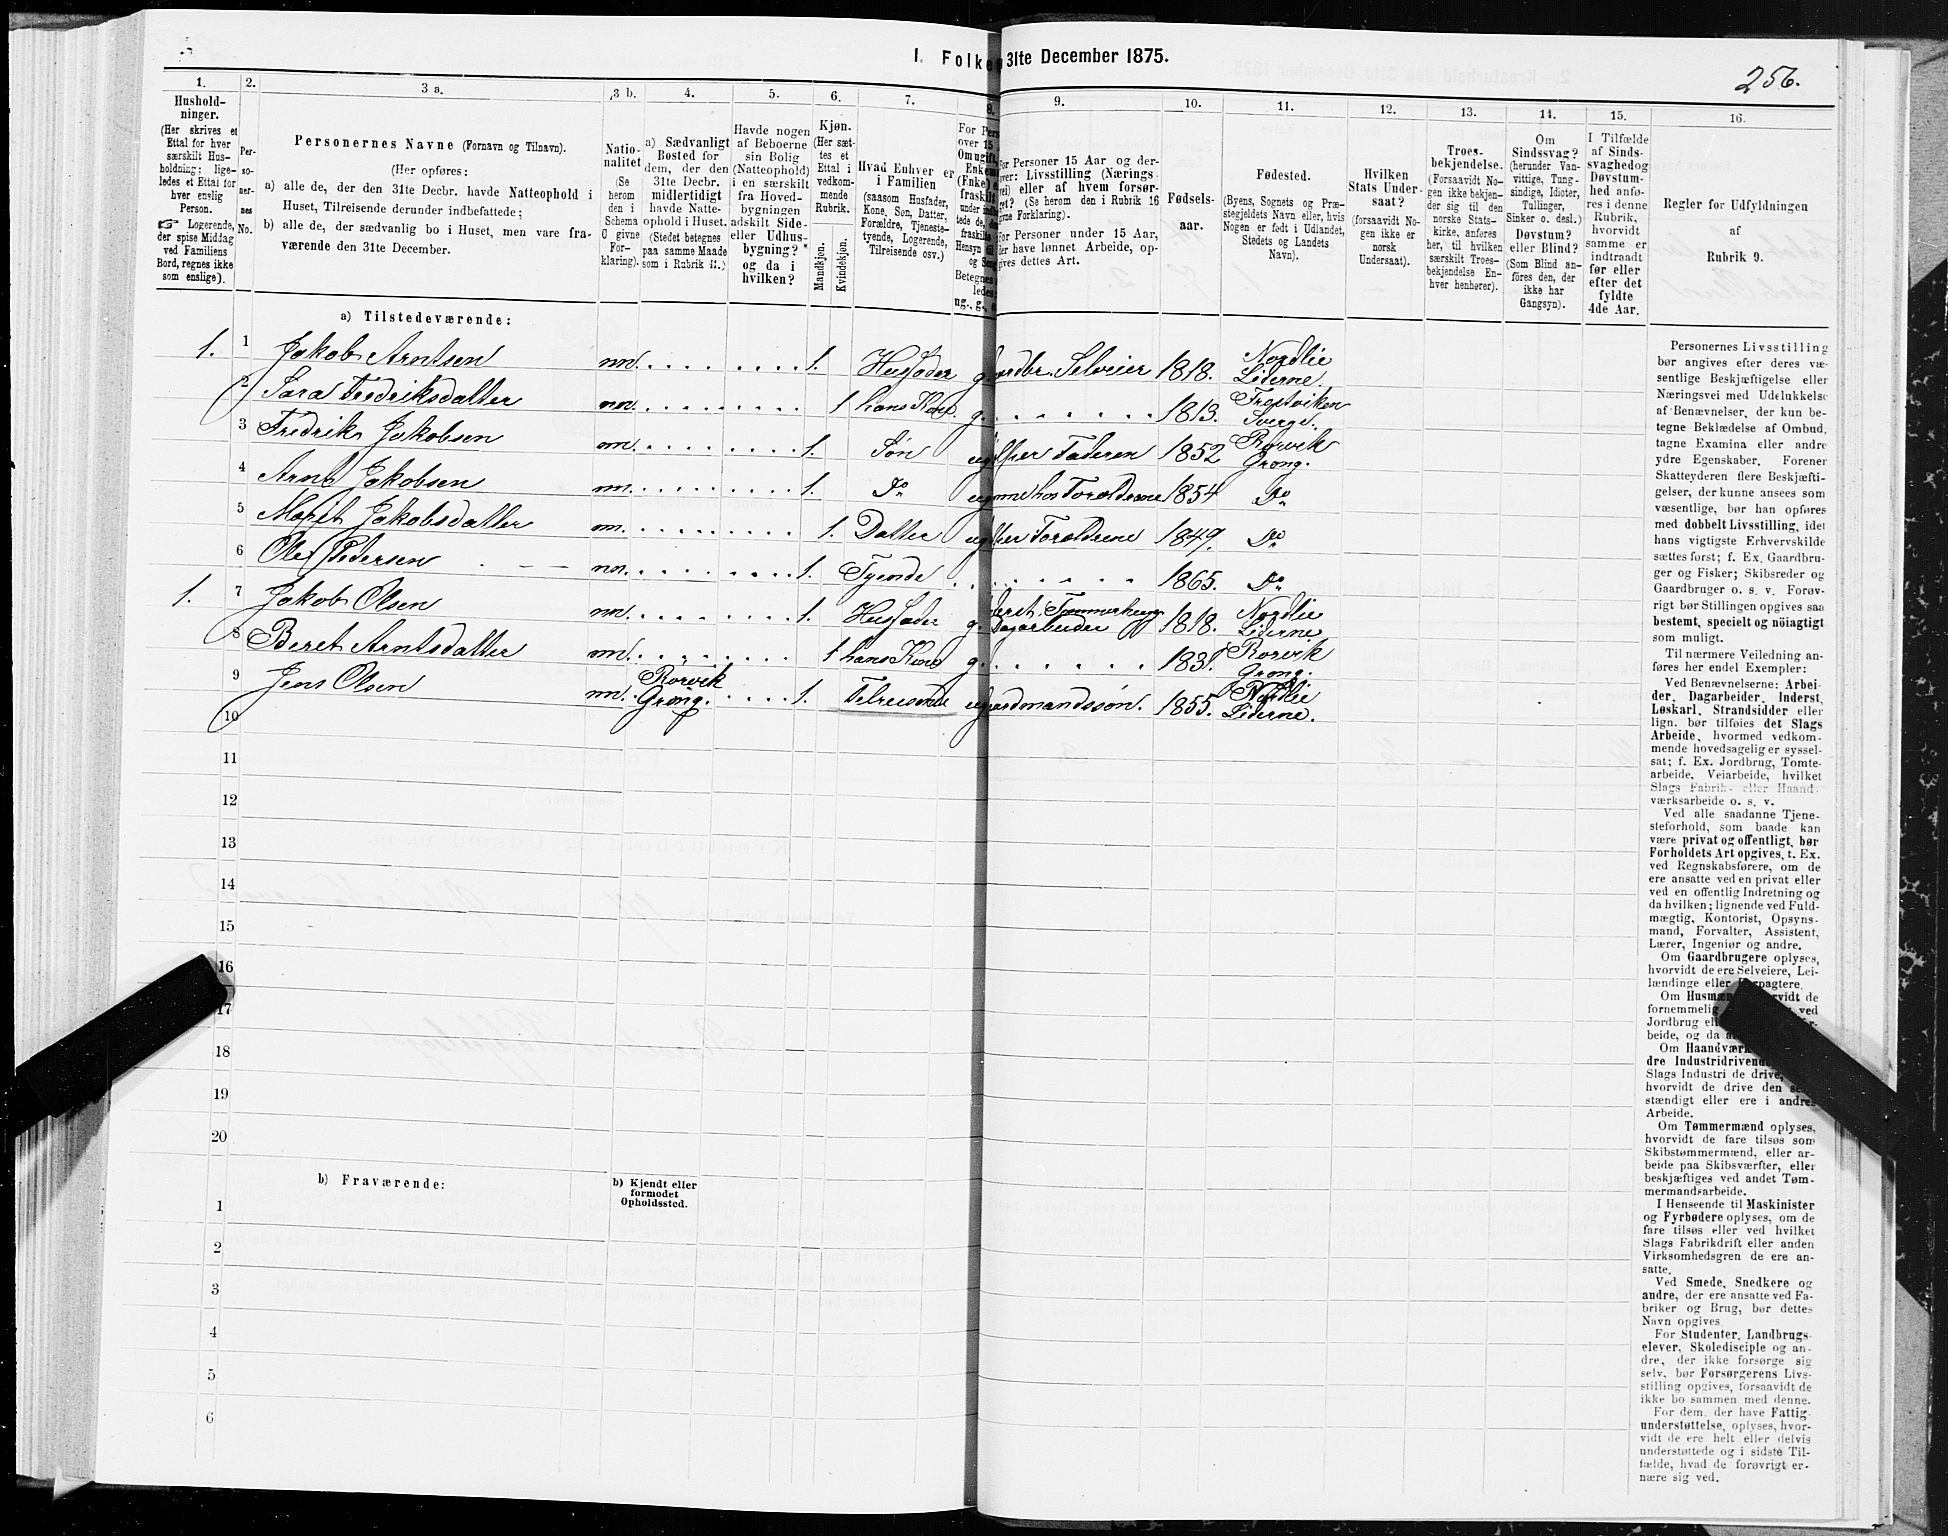 I. Folke 31te December 1875.
256.
1. 2. 3 a. 3 b. 4. 5. 6. 7. 8. 9. 10. 11. 12. 13. 14. 15. 16.
Hushold-
ninger.
(Her skrives et
Ettal for hver
særskilt Hus-
holdning; lige-
ledes et Ettal for
hver enslig
Person.
☞ Logerende,
der spise Middag
ved Familiens
Bord, regnes ikke
som enslige).
Per-
so-
ner-
nes
No.
Personernes Navne (Fornavn og Tilnavn).
(Her opføres:
a) alle de, der den 31te Decbr. havde Natteophold i
Huset, Tilreisende derunder indbefattede;
b) alle de, der sædvanlig bo i Huset, men vare fra-
værende den 31te December.
Natio-
nalitet
(Se
herom
den i
Schema
O givne
For-
klaring).
a) Sædvanligt
Bosted for
dem, der den
31te Decbr.
midlertidigt
havde Natte-
ophold i Huset.
(Stedet betegnes
paa samme Maade
som i Rubrik 11.)
Havde nogen
af Beboerne
sin Bolig
(Natteophold)
i en særskilt
fra Hoved-
bygningen
adskilt Side-
eller Udhus-
bygning?
og da i
hvilken?
Kjøn.
(Her sæt-
tes et
Ettal i
vedkom-
mende
Rubrik.
Mandkjøn.
Kvindekjøn.
Hvad Enhver er
i Familien
(saasom Husfader,
Kone, Søn, Datter,
Forældre, Tjeneste-
tyende, Logerende,
Tilreisende osv.)
For Pers
over 15
Om ugift,
Enkem
(Enke) e
fraskilt
Betegnes
ledes:
ug., g., e
For Personer 15 Aar og der-
over: Livsstilling (Nærings-
vei) eller af hvem forsør-
get? (Se herom den i Rubrik 16
givne Forklaring).
For Personer under 15 Aar,
der have lønnet Arbeide, op-
gives dettes Art.
Fødsels-
aar.
Fødested.
(Byens, Sognets og Præ-
stegjeldets Navn eller, hvis
Nogen er født i Udlandet,
Stedets og Landets
Navn).
Hvilken
Stats Under-
saat?
(forsaavidt No-
gen ikke er
norsk
Undersaat).
Troes-
bekjendelse.
(Forsaavidt No-
gen ikke bekjen-
der sig til den
norske Stats-
kirke, anføres
her, til hvilken
særskilt Troes-
bekjendelse En-
hver henhører).
Om
Sindssvag?
(herunder Van-
vittige, Tung-
sindige, Idioter,
Tullinger,
Sinker o. desl.)
Døvstum?
eller Blind?
(Som Blind an-
føres den, der
ikke har
Gangsyn).
I Tilfælde
af Sinds-
svaghed og
Døvstum-
hed anfø-
res i denne
Rubrik,
hvorvidt
samme er
indtraadt
før eller
efter det
fyldte
4de Aar.
Regler for Udfyldningen
af
Rubrik 9.
a) Tilstedeværende:
1. 1 Jakob Arntsen nn. 1. Husfader g. Gaardbr. Selveier 1818. Nordlie Lierne.
2 Sara Fredriksdatter nn. 1 hans Kone g. 1813. Frostviken Sverge.
3 Fredrik Jakobsen nn. 1. Søn ug. hjælper Faderen 1852 Rørvik Grong.
4 Arnt Jakobsen nn. 1. Do ug. hjemme hos Forældrene 1854 Do
5 Maret Jakobsdatter nn. 1. Datter ug. hjælper Forældrene 1849. Do
6 Ole Pedersen nn. 1. Tyende 1865. Do
1. 7 Jakob Olsen nn. 1. Husfader g. Tømmerhug Dagarbeider 1818. Nordlie Lierne
8 Beret Arntsdatter nn. 1 hans Kone g. 1831. Rørvik Grong.
9 Jens Olsen nn. Rørvik Grong. 1. Tilreisende ug. Gaardmandssøn. 1855. Nordlie Lierne.
10
11
12
13
14
15
16
17
18
19
20
b) Fraværende:
b) Kjendt eller
formodet
Opholdssted.
1
2
3
4
5
6
Personernes Livsstilling
bør angives efter deres væ-
sentlige Beskjæftigelse eller
Næringsvei med Udelukkelse
af Benævnelser, der kun be-
tegne Beklædelse af Ombud,
tagne Examina eller andre
ydre Egenskaber. Forener
Skatteyderen flere Beskjæfti-
gelser, der kunne ansees som
væsentlige, bør han opføres
med dobbelt Livsstilling, idet
hans vigtigste Erhvervskilde
sættes først; f. Ex. Gaardbru-
ger og Fisker; Skibsreder og
Gaardbruger o. s. v. Forøv-
rigt bør Stillingen opgives saa
bestemt, specielt og nöiagtigt
som muligt.
Til nærmere Veiledning an-
føres her endel Exempler:
Ved Benævnelserne: Arbei-
der, Dagarbeider, Inderst,
Løskarl, Strandsidder eller
lign. bør tilføies det Slags
Arbeide, hvormed vedkom-
mende hovedsagelig er syssel-
sat; f. Ex. Jordbrug, Tomte-
arbeide, Veiarbeide, hvilket
Slags Fabrik- eller Haand-
værksarbeide o. s. v.
Ved alle saadanne Tjene-
steforhold, som baade kan
være privat og offentligt, bør
Forholdets Art opgives, t. Ex.
ved Regnskabsførere, om de
ere ansatte ved en privat eller
ved en offentlig Indretning og
da hvilken; lignende ved Fuld-
mægtig, Kontorist, Opsyns-
mand, Forvalter, Assistent,
Lærer, Ingeniør og andre.
Om Gaardbrugere oplyses,
hvorvidt de ere Selveiere, Lei-
lændinge eller Forpagtere.
Om Husmæn hvorvidt de
fornemmelig ved
Jordbrug el
beide, og da
Om Haandværk
dre Industridrivend
Slags Industri de drive,
hvorvidt de drive den se
stændigt eller ere i andres
Arbeide.
Om Tømmermænd oplyses,
hvorvidt de fare tilsøs som
Skibstømmermænd, eller ar-
beide paa Skibsværfter, eller
beskjæftiges ved andet Tøm-
mermandsarbeide.
I Henseende til Maskinister
og Fyrbødere oplyses, om de
fare tilsøs eller ved hvilket
Slags Fabrikdrift eller anden
Virksomhedsgren de ere an-
satte.
Ved Smede, Snedkere og
andre, der ere ansatte ved Fa-
briker og Brug, bør dettes
Navn opgives.
For Studenter, Landbrugs-
elever, Skoledisciple og an-
dre, der ikke forsørge sig
selv, bør Forsørgerens Livs-
stilling opgives, forsaavidt de
ikke bo sammen med denne.
For dem, der have Fattig-
understøttelse, oplyses, hvor-
vidt de ere helt eller delvis
understøttede og i sidste Til-
fælde, hvad de forøvrigt er-
nære sig ved.